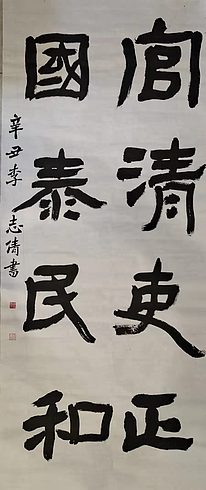 官清吏正
國泰民和
辛丑李志倩書